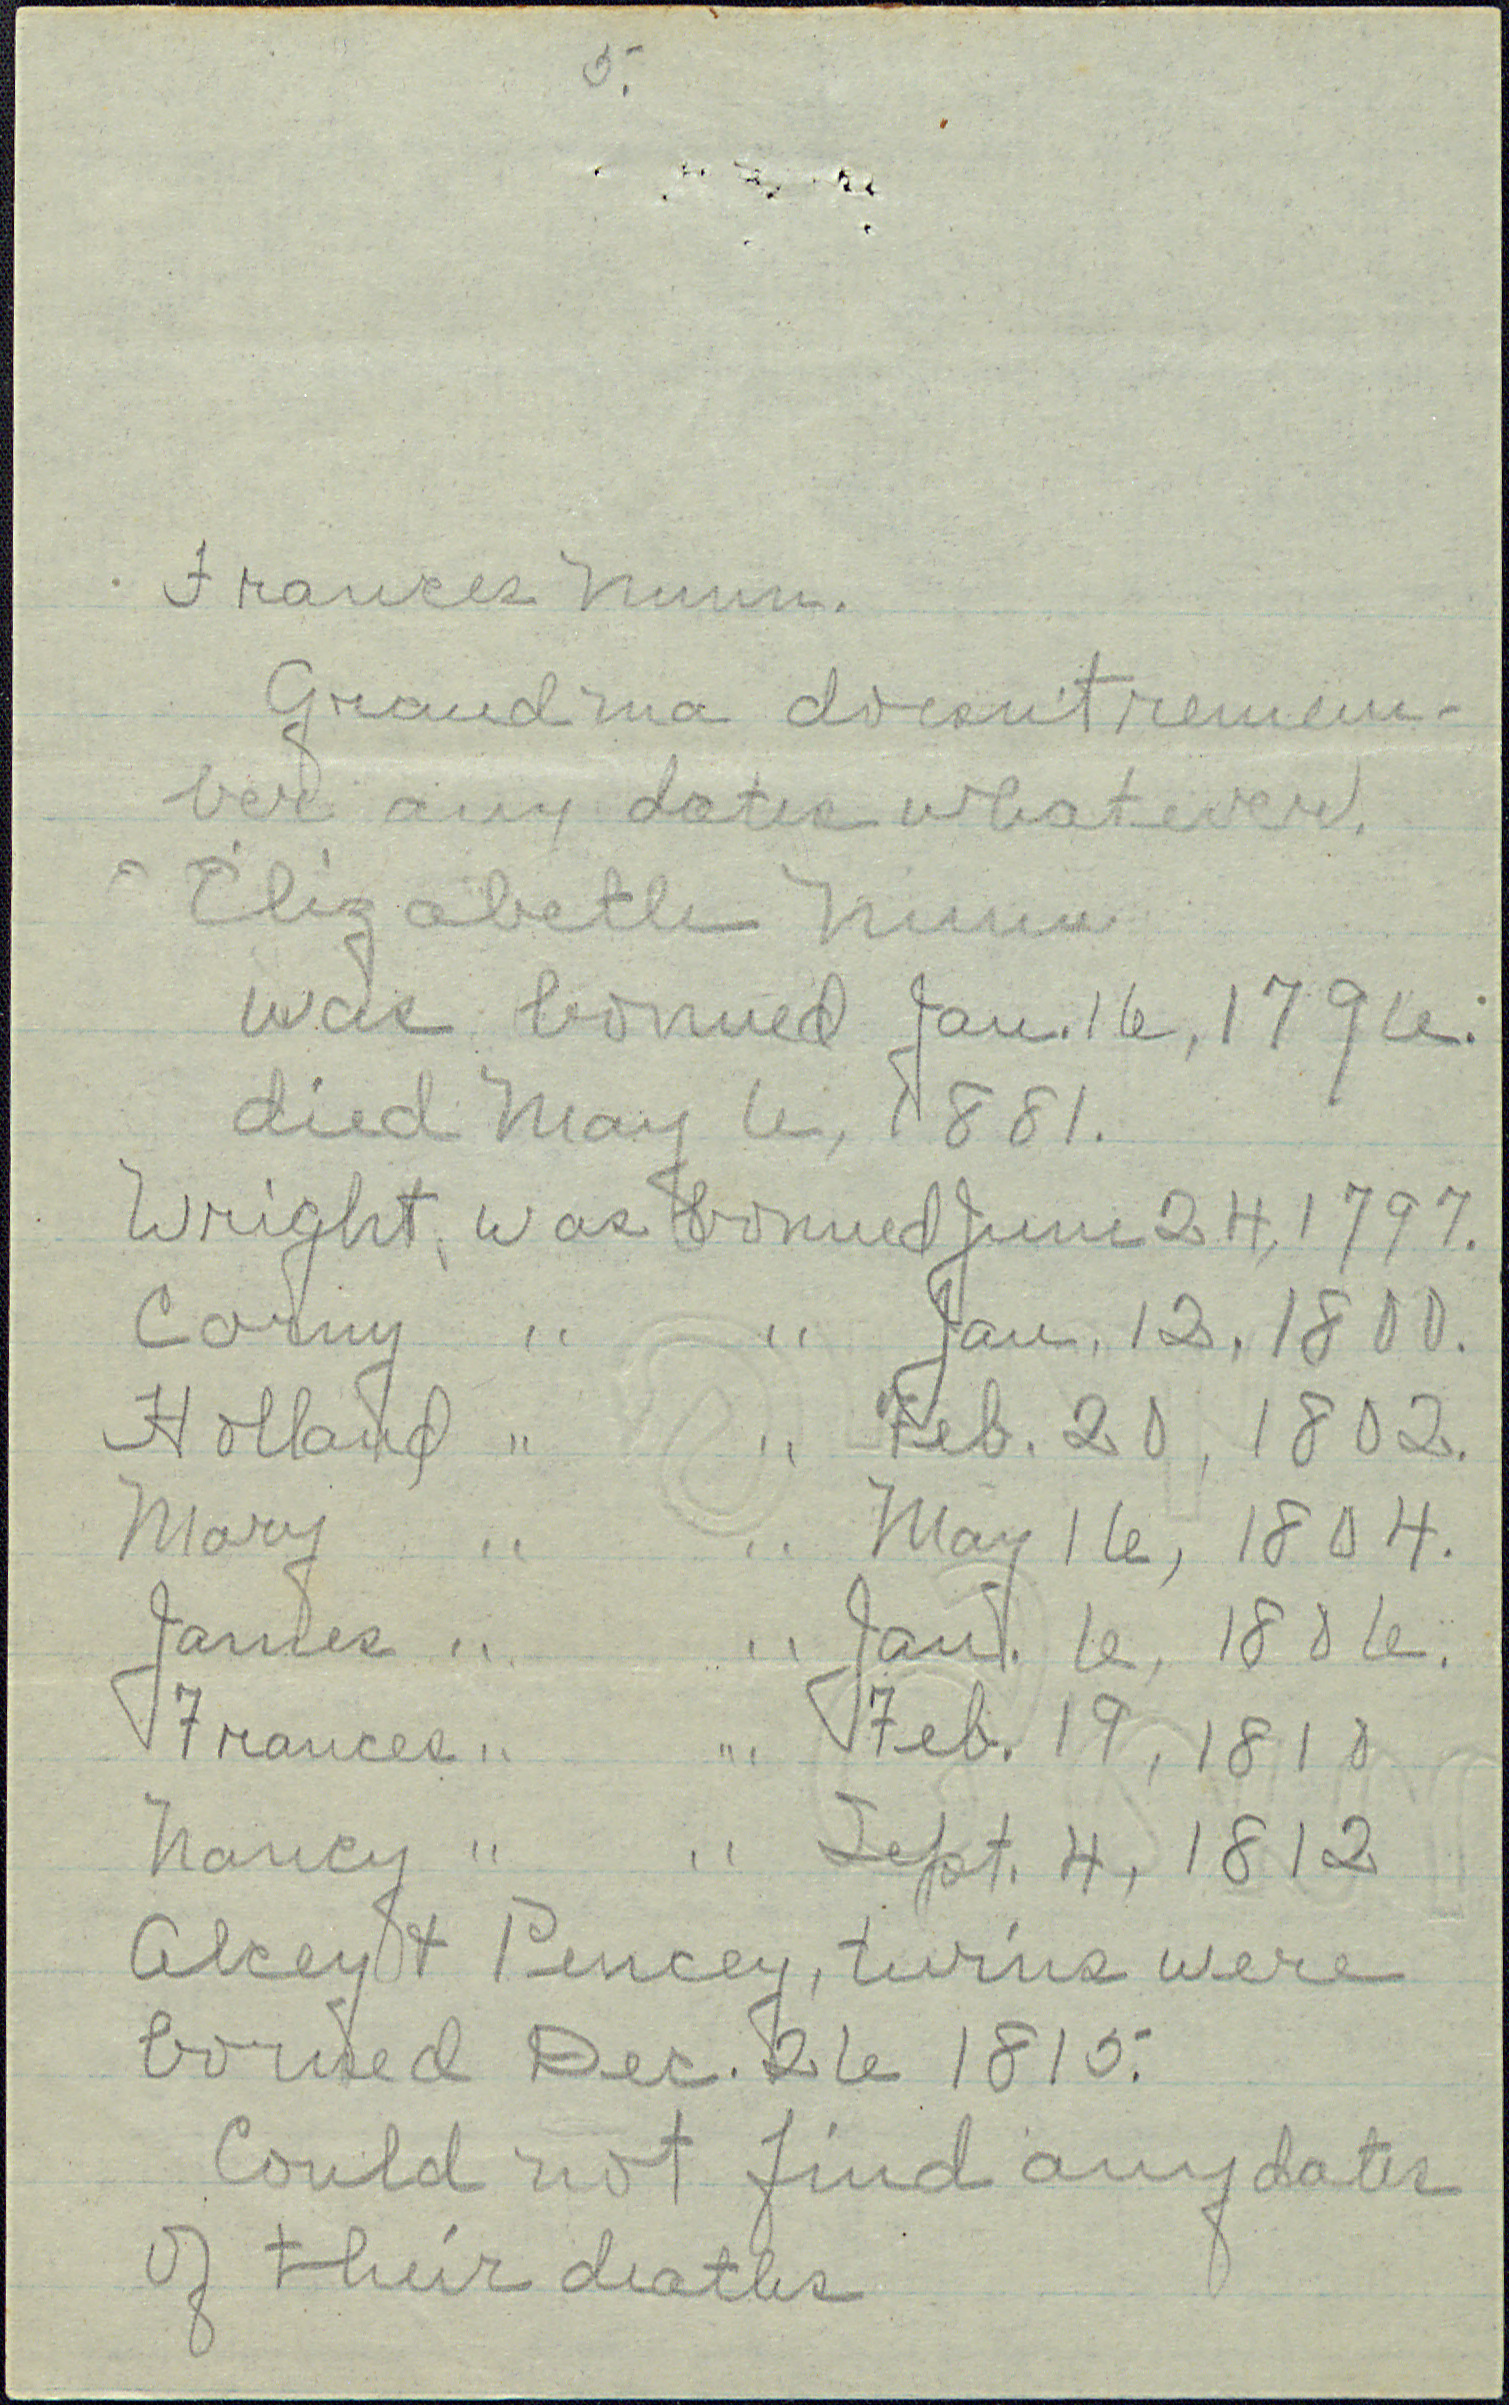 5.
Frances Nunn.
Grandma doesn't remem-
ber any dates whatever.
Elizabeth Nunn
was borned Jan. 16, 1796.
died May 6, 1881.
Wright, was borned June 24, 1797.
Corny " " Jan. 12, 1800.
Holland " " Feb. 20, 1802.
Mary " " May 16, 1804.
James " " Jan. 6, 1806.
Frances " " Feb. 19, 1810
Nancy " " Sept. 4, 1812
Alcey & Pencey, twins were
borned Dec. 26 1815.
Could not find any dates
of their deaths